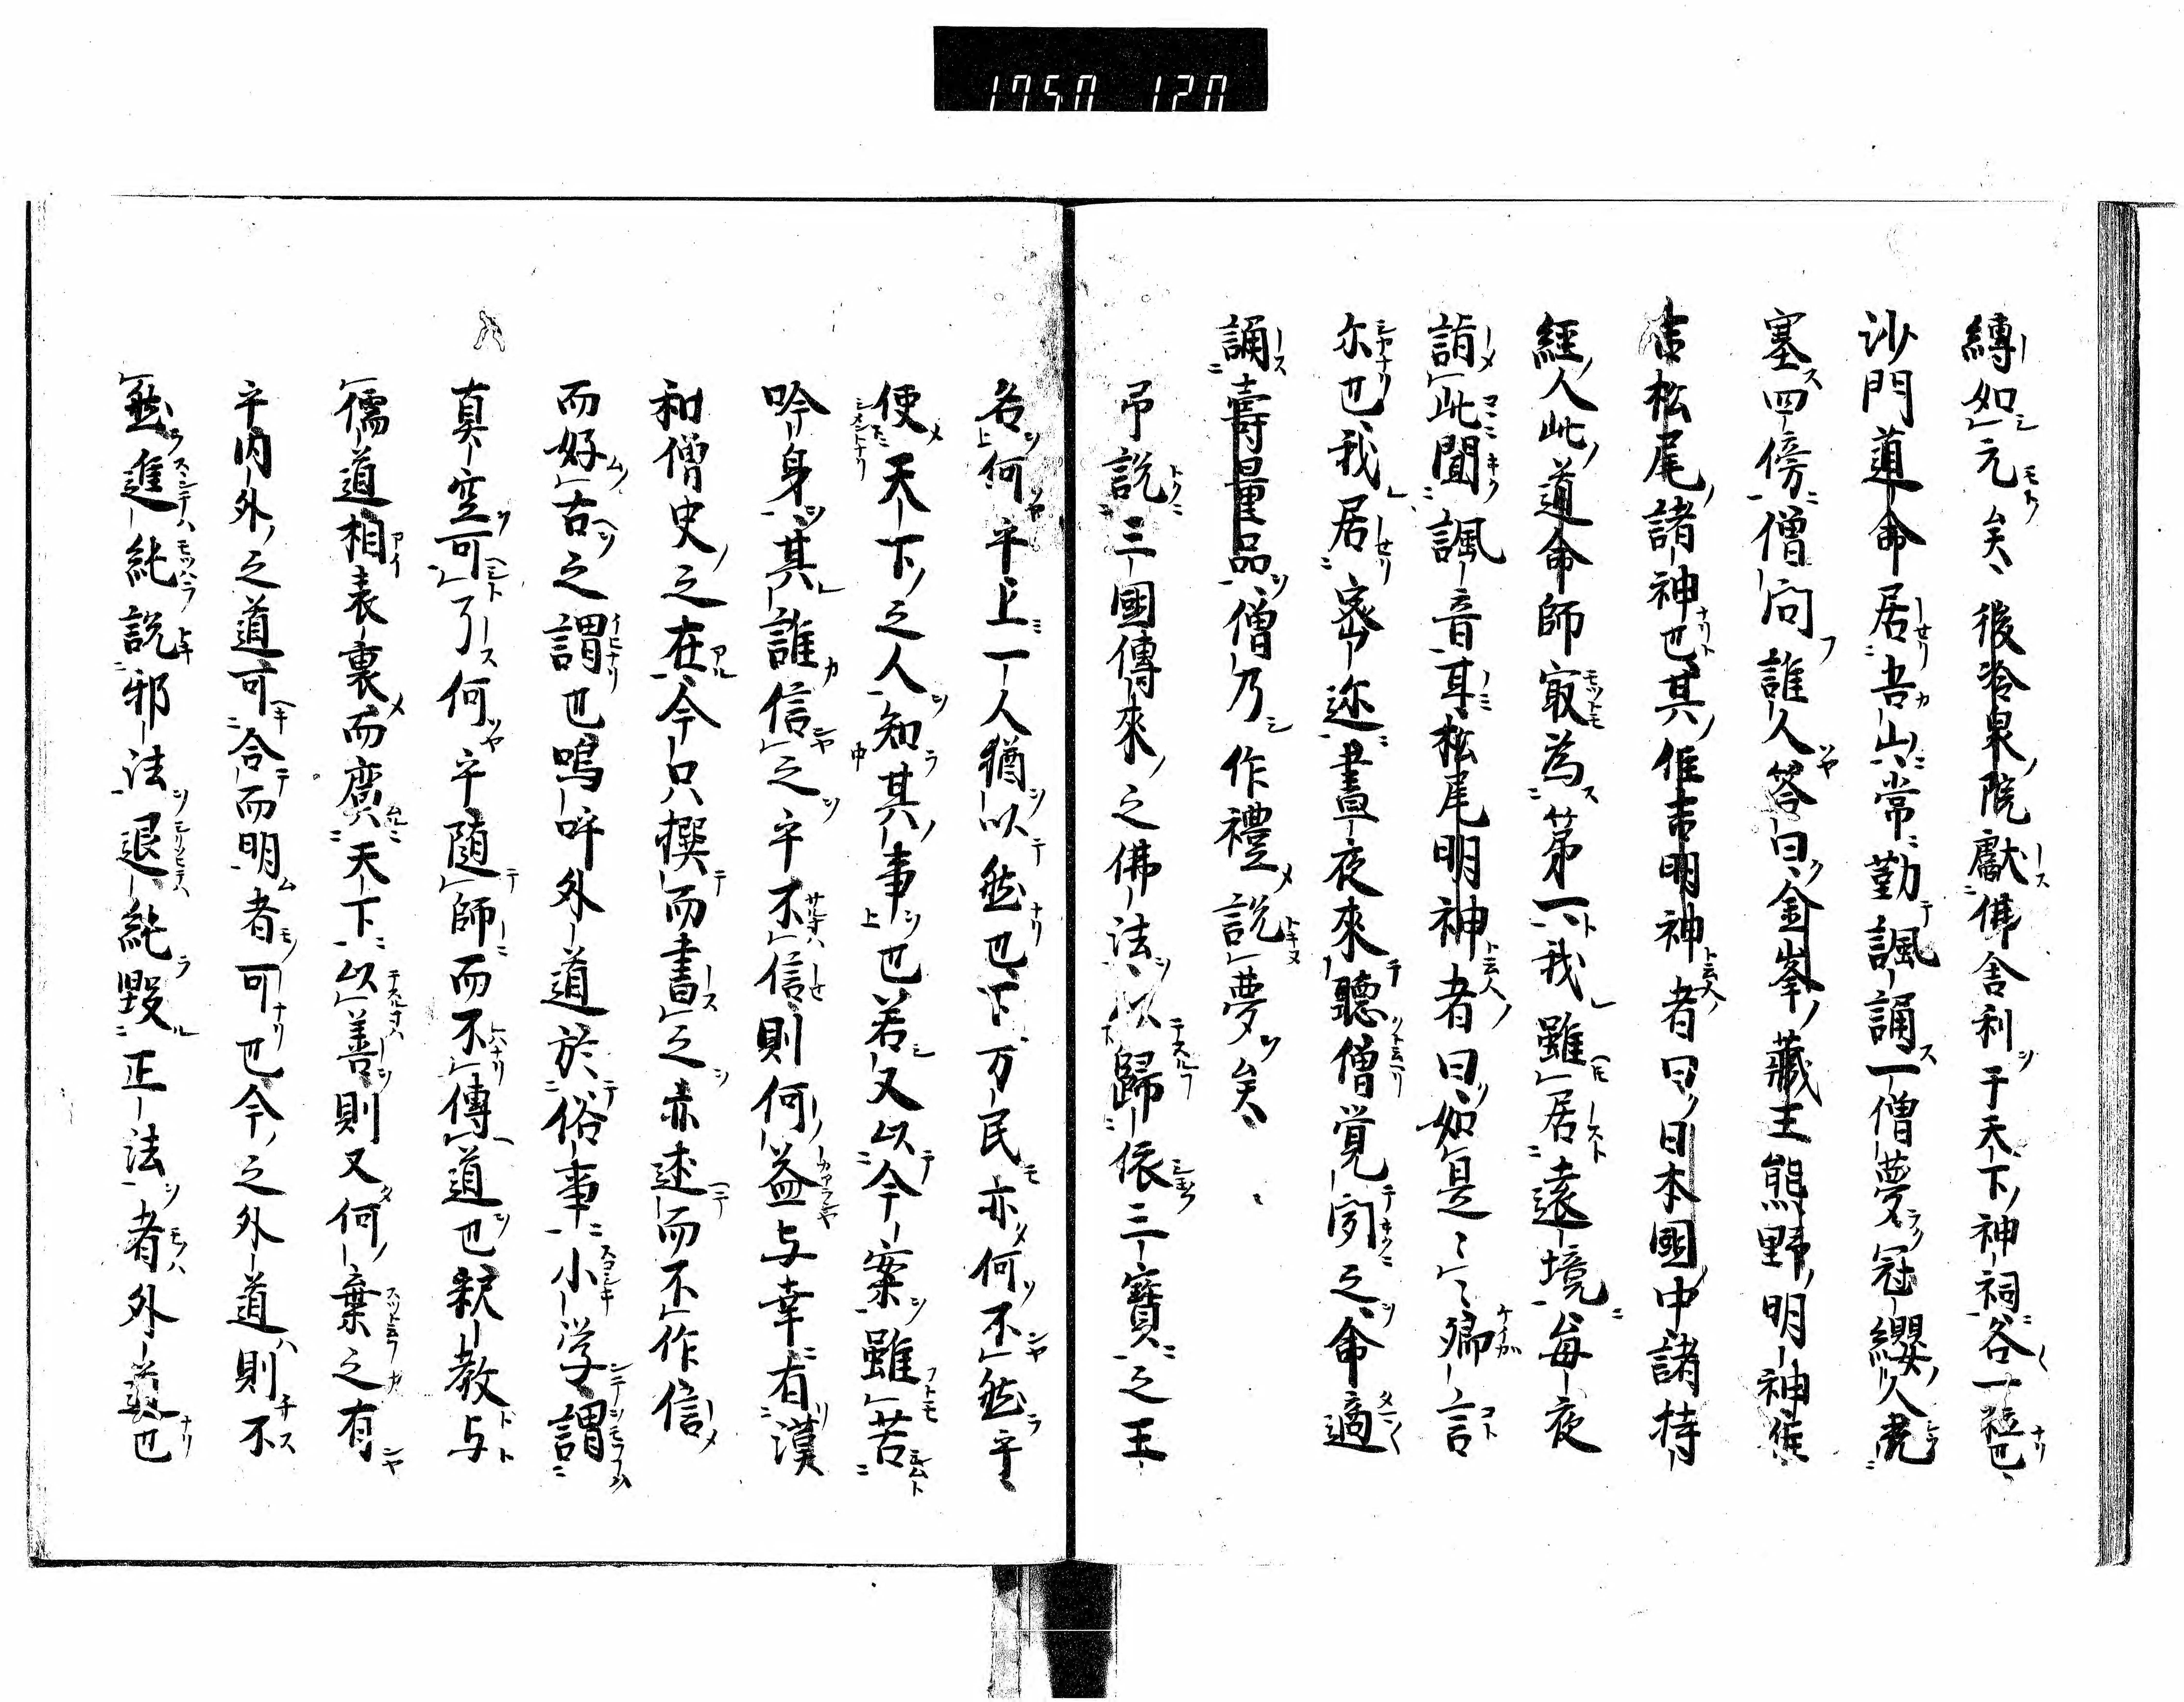 1750 120
縛如元矣後冷泉院獻佛舎利于天下神祠各一粒也
沙門道命居吾山常勤諷誦一僧夢冠纓人充
塞四傍僧向誰人答曰金峯藏王熊野明神住
吉松尾諸神也其住吉明神者曰日本國中諸持
經人此道命師㝡為第一我雖居遠境毎夜
詣此聞諷音耳松尾明神者曰如是〻〻卿言
尓也我居密迩晝夜來聽僧覚聞之命適
誦壽量品僧乃作禮説夢矣
帚説三國傳來之佛法以歸依三寳之王
名何乎上一人猶以然也下万民亦何不然乎
便天下之人知其事也若又以今案雖苦
吟身其誰信之乎不信則何益与幸有漢
和僧史之在今只撰而書之亦述而不作信
而好古之謂也嗚呼外道於俗事小学謂
真空可了何乎随師而不傳道也釈教与
儒道相表裏而廣天下以善則又何棄之有
乎内外之道可合而明者可也今之外道則不
然進純説邪法退純毀正法者外道也